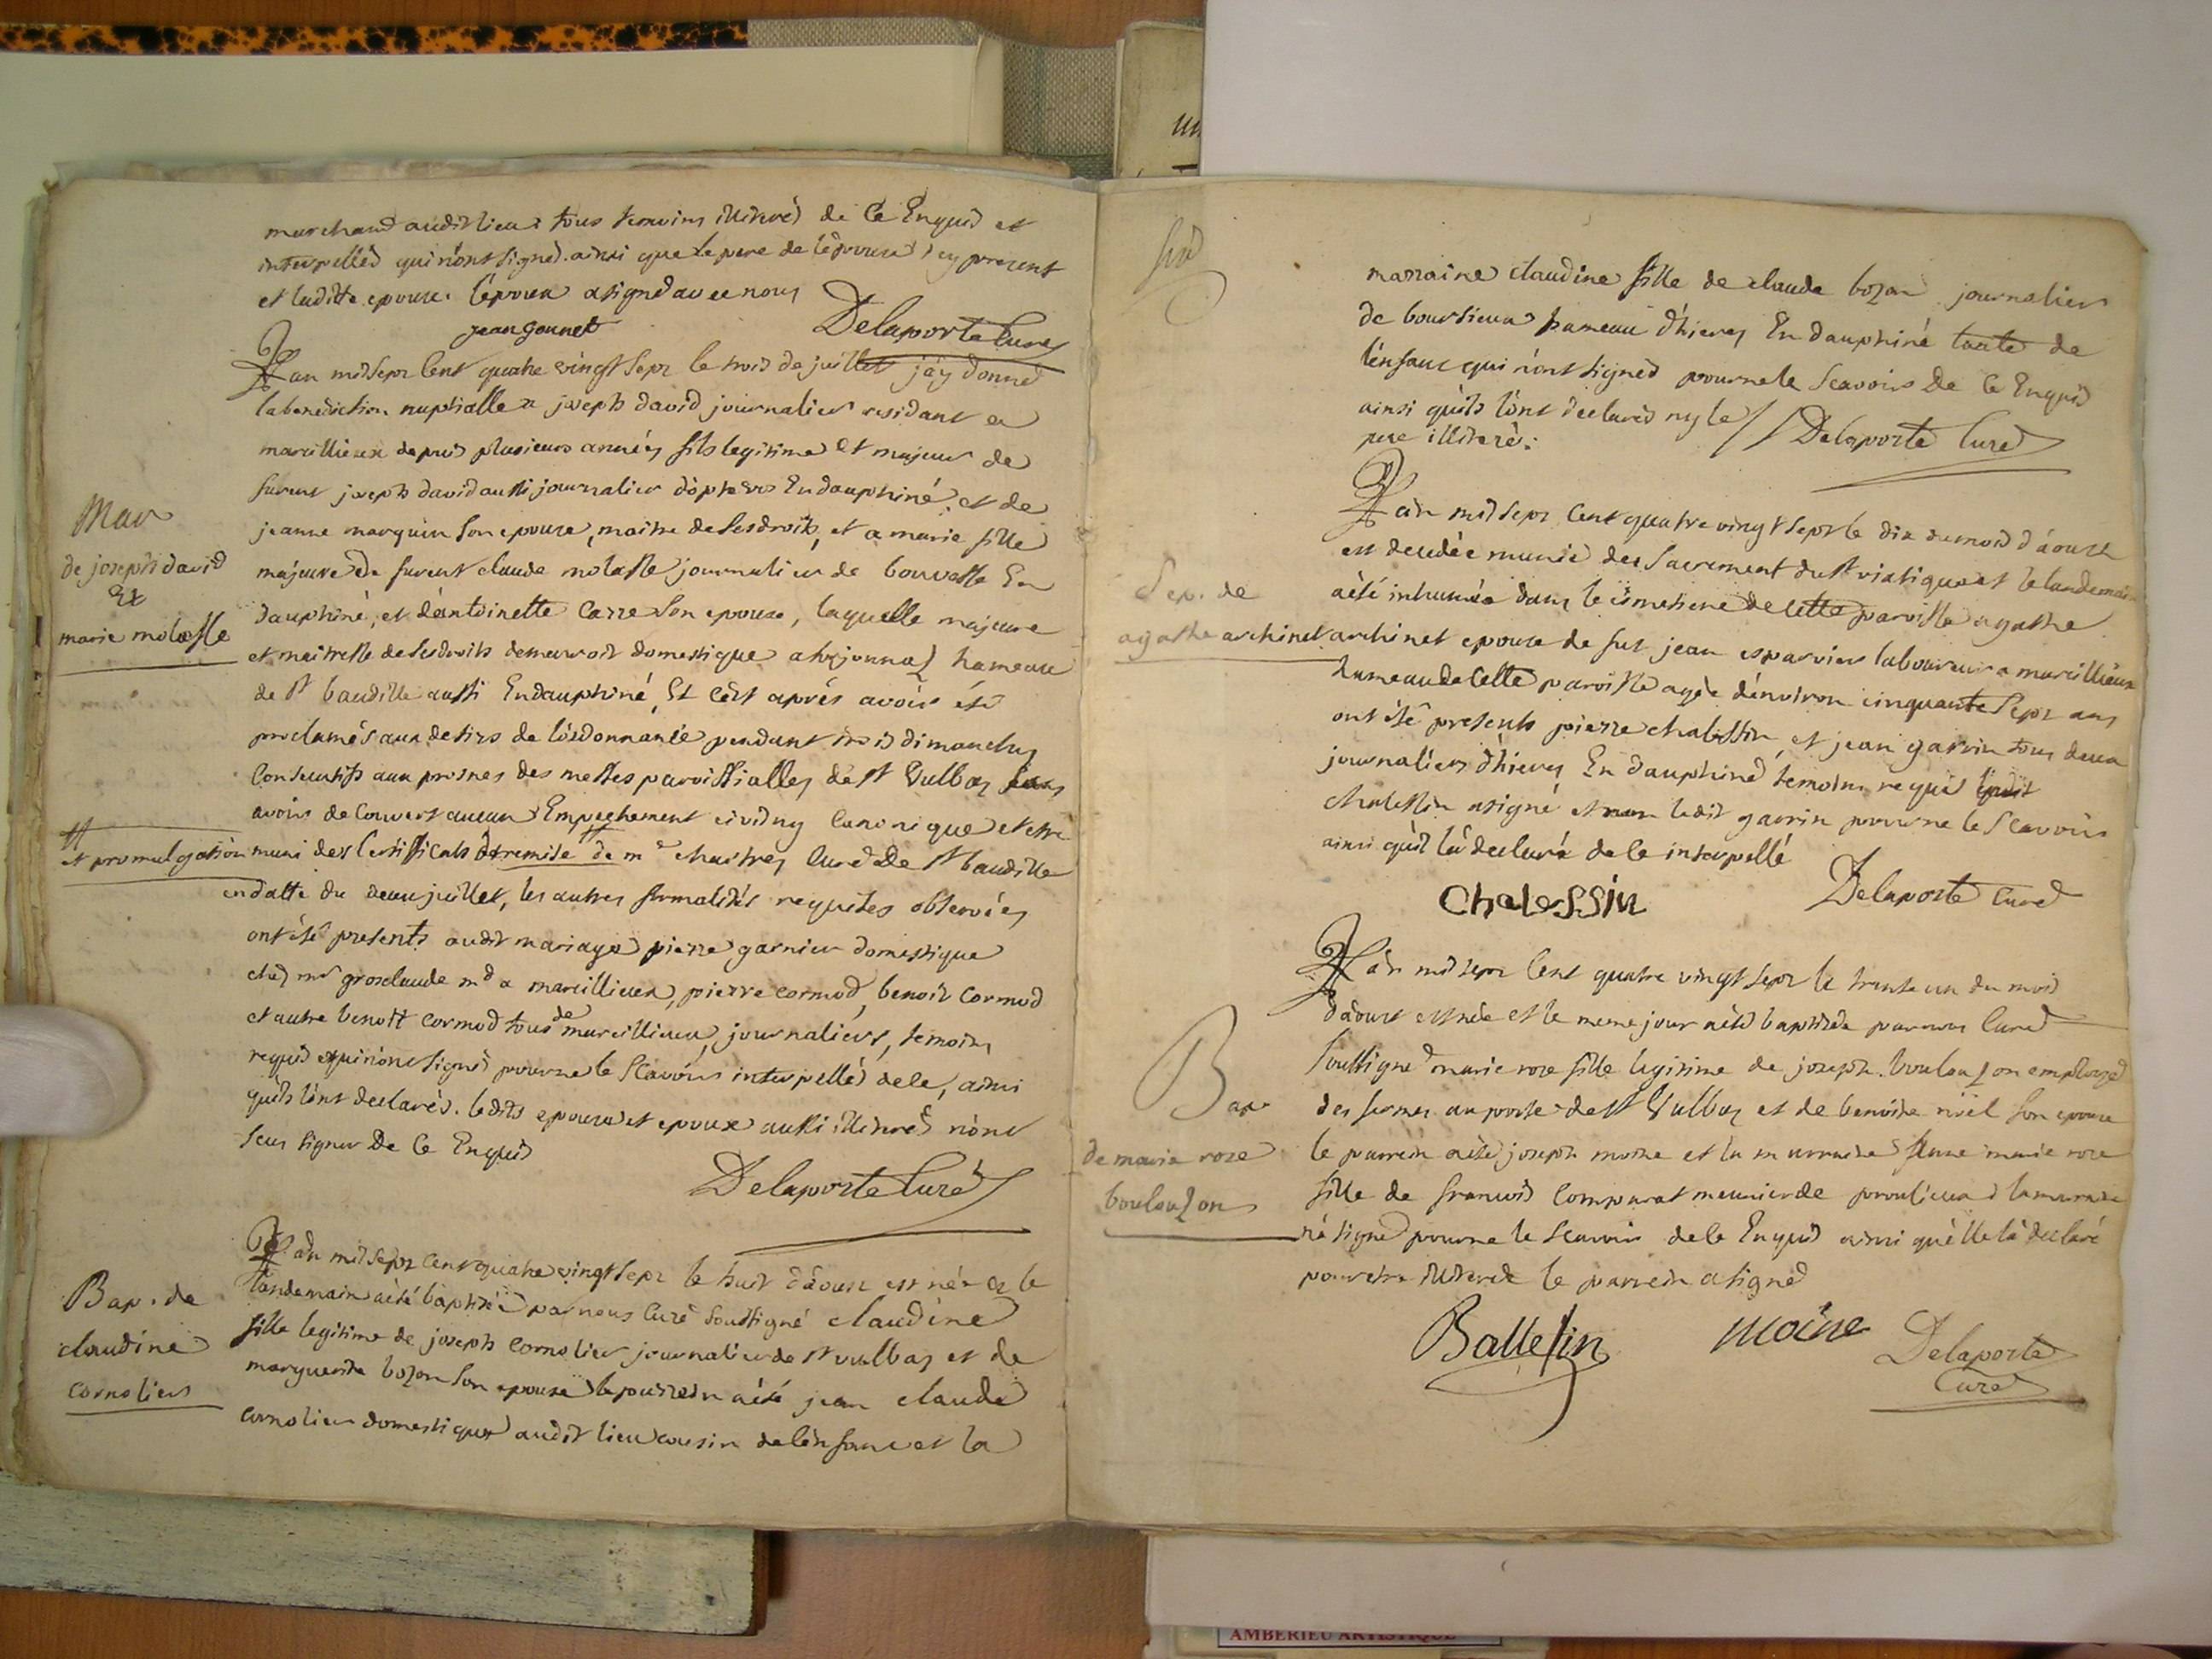 marchand audit lieu tous temoins illiterés de ce Enquis et
interpellés qui n'ont signés. ainsi que le pere de l'epouse ey present
et ladite epouse. l'epoux a signé avec nous
jean gounet
Delaporte Curé
L'an mil sept Cent quatre vingt Sept le trois de juillet j'ay donné
la benediction nuptialle a joseph david journalier residant a
marcillieux depuis plusieurs années fils legitime et majeur de
furent joseph david aussi journalier d'opteros En dauphiné, et de
jeanne marquin Son epouse, maitre de Ses droits, et a marie fille
majeure de furent claude molasse journalier de bouvesse En
dauphiné, et d'antoinette Carre Son epouse, laquelle majeure
et maitresse de Ses droits demeuroit domestique a hameau
de St baudille aussi En dauphiné, Et C'est aprés avoir été
proclamés aux desirs de l'ordonnance pendant trois dimanches
Consecutifs aux prosnes des messes paroissialles de St Vulbas sans
avoir decouvert aucun Empechement civil ny Canonique et etre
muni des Certificats de remise # de mr chaitres Curé de St baudille
en datte du deux juillet, les autres formalités requises observées
ont été presents audit mariage pierre garnier domestique
chez mr grosclaude md a marcillieux, pierre cormod, benoit Cormod
et autre benoit cormod tous de marcillieux, journaliers, temoins
requis et qui n'ont signés pour ne le Scavoir interpellés de le, ainsi
qu'ils l'ont declarés. lesdits epouse et epoux aussi illiterés n'ont
Sceu signer De Ce Enquis
Delaporte Curé
Mar
de joseph david
Et
marie molasse
#
et promulgation
L'an mil Sept Cent quatre vingt Sept le huit d'aoust est née et le
landemain a été baptisée par nous Curé Soussigné claudine
fille legitime de joseph Cornolier journalier de St vulbas et de
marguerite bozon Son epouse le parrein a été jean claude
cornolier domestique audit lieu cousin de l'enfant et la
Bap. de
claudine
Cornolier
marraine claudine fille de claude bozon journalier
de boursieux hameau d'hieres En dauphiné tante de
l'enfant qui n'ont signés pour ne le Scavoir De Ce Enquis
ainsi qu'ils l'ont declarés ny le
pere illiteré.
Delaporte Curé
L'an mil sept Cent quatre vingt sept le dix du mois d'aoust
est decedée munie des Sacrement du St viatique et le landemain
a été inhumée dans le cimetiere de cette paroisse agathe
archinet epouse de fut jean esparvier laboureur a marcillieux
hameau de Cette paroisse agée d'environ cinquante Sept ans
ont été presents pierre chalessin, et jean garrin tous deux
journaliers d'hieres En dauphiné temoins requis ledit
chalessin a signé et non ledit garrin pour ne le Scavoir
ainsi qu'il l'a declaré de le interpellé
Chalessin
Delaporte Curé
Sep. de
agathe archinet
L'an mil sept Cent quatre vingt sept le trente un du mois
d'aoust est née et le meme jour a été baptisée par nous Curé
Soussigné marie rose fille legitime de joseph boulouzon employé
des fermes au poste de St Vulbas et de benoite noël Son epouse
le parrein a été joseph moine et la marraine marie rose
fille de francois Comparat meunier de proulieux la marraine
n'a signé pour ne le Scavoir de le Enquis ainsi qu'elle l'a declaré
pour etre illiterée le parrein a signé
Ballefin
moine
Delaporte
Curé
Bap
de marie rose
boulouzon
AMBERIEU ARTISTIQUE